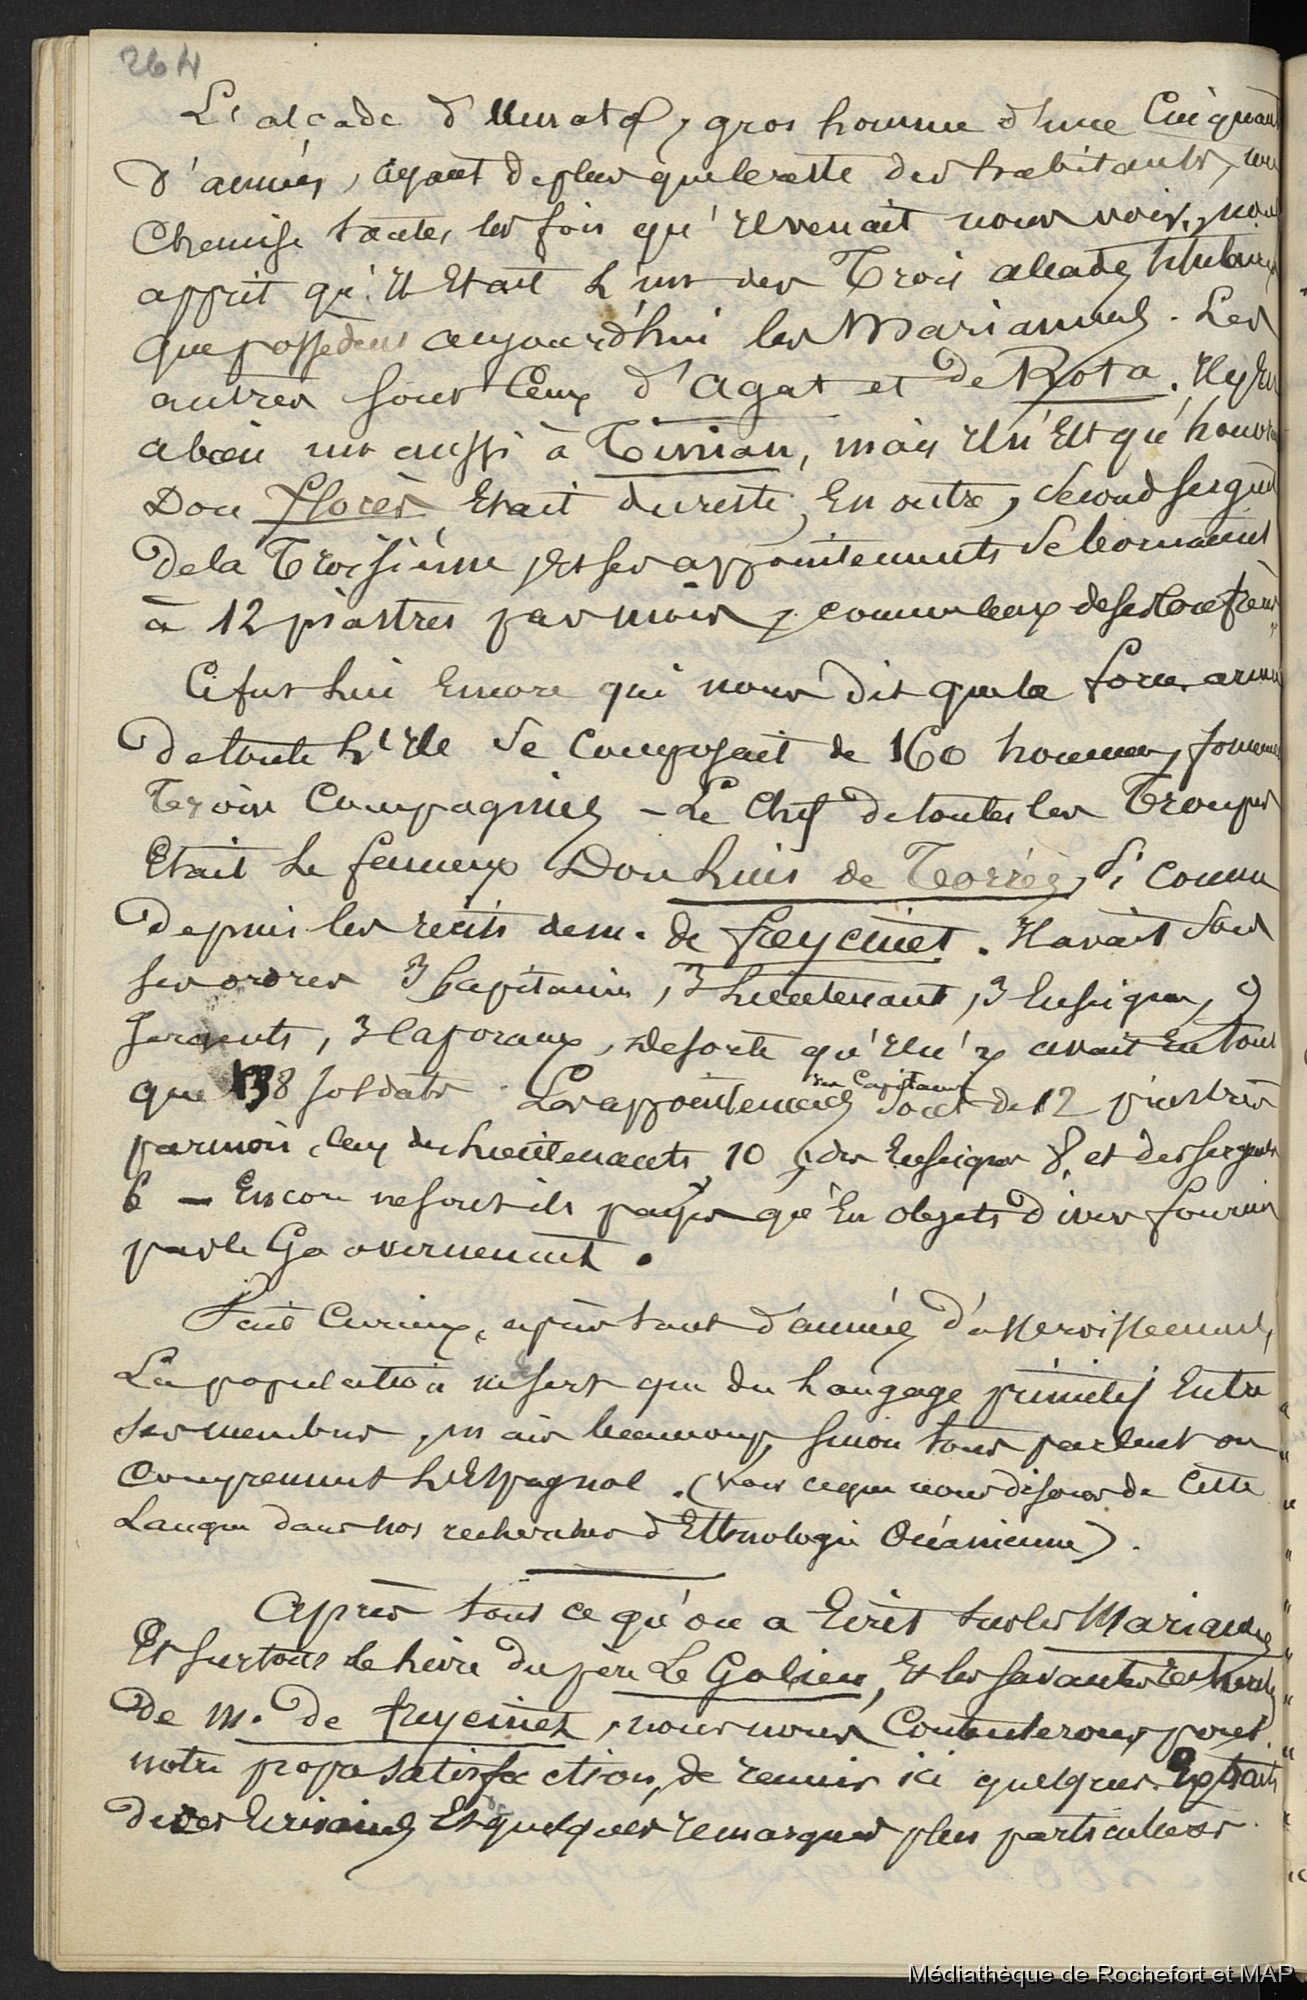 264
L'alcade d'Umata, gros homme d'une Cinquant
d'années, ayant de plus que le reste des habitants, une
Chemise toutes les fois qu'il venait nous voir, nous
apprit qu'il Etait L'un des Trois alcades titulaires
que possedent aujourd'hui les Mariannes. Les
autres sont Ceux d'Agat et de Rota. Il y En
a bien un aussi à Tinian, mais il n'Est qu'honor
Don Florès Etait du reste, En outre, second sergent
de la Troisième, Et ses appointements se bornaient
à 12 piastres par mois, comme ceux de ses confrères
Ce fut Lui Encore qui nous dit que la force armée
de toute L'Ile se Composait de 160 hommes, formant
Trois Compagnies - Le Chef de toutes les Troupes
Etait Le fameux Don Luis de Torrès, si connu
depuis les recits de m. de Freycinet. Il avait sous
ses ordres 3 Capitaines, 3 Lieutenants, 3 Enseignes, 9
Sergents, 3 Caporaux, de sorte qu'il n'y avait En tout
que 138 soldats. Les appointements des Capitaines sont de 12 piastres
par mois, ceux des Lieutenants 10, des Enseignes 8, et des sergents
6 - Encore ne sont ils payés qu'En objets divers fournis
par le Gouvernement.
Fait Curieux, après tant d'années d'asservissement,
La population ne se sert que du Langage primitif Entre
ses membres, mais beaucoup, sinon tous parlent ou
comprennent L'Espagnol. (Voir ce que nous disons de Cette
Langue dans nos recherches d'Ethnologie Océanienne).
Après tout ce qu'on a Ecrit sur les Mariannes
Et surtout le Livre du père Le Gobien, Et les savantes recherches
de m. de freycinet, nous nous Contenterons pour
notre propre satisfaction, de reunir ici quelques Extraits
de ces Ecrivains Et quelques remarques plus particulières.
Médiathèque de Rochefort et MAP